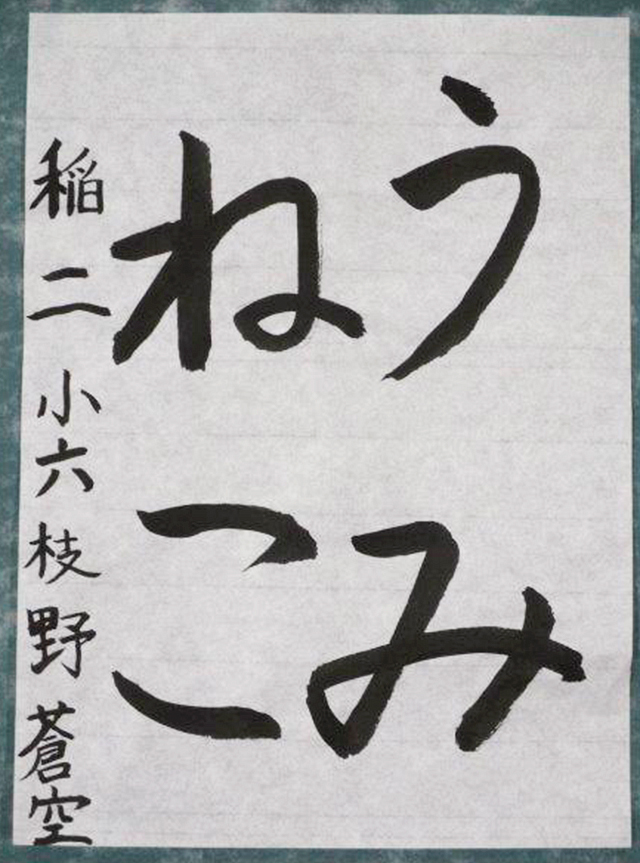 うみ
ねこ
稲二小六枝野蒼空